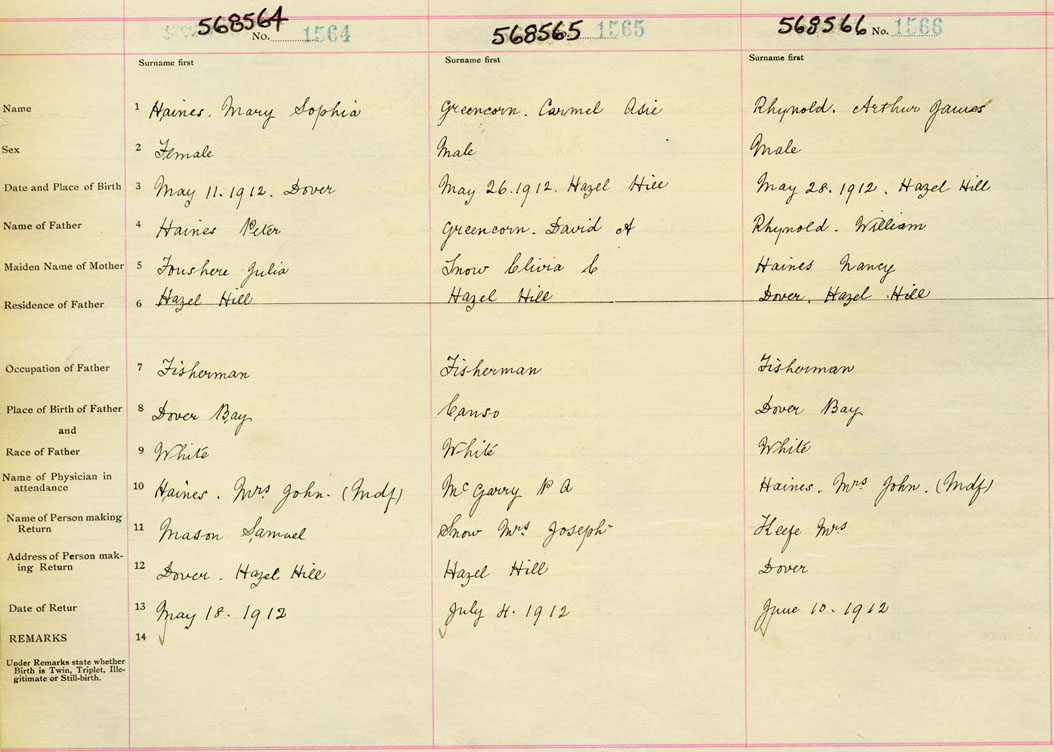 568564 No. 1564 568565 1565 568566 No. 1566
Surname first Surname first Surname first
Name 1 Haines. Mary Sophia Greencorn. Carmel Asie Rhynold. Arthur James
Sex 2 Female Male Male
Date and Place of Birth 3 May 11. 1912. Dover May 26. 1912. Hazel Hill May 28. 1912. Hazel Hill
Name of Father 4 Haines Peter Greencorn. David A Rhynold. William
Maiden Name of Mother 5 Foushere Julia Snow Clivia C Haines Nancy
Residence of Father 6 Hazel Hill Hazel Hill Dover. Hazel Hill
Occupation of Father 7 Fisherman Fisherman Fisherman
Place of Birth of Father 8 Dover Bay Canso Dover Bay
and
Race of Father 9 White White White
Name of Physician in
attendance 10 Haines. Mrs John. (Mdf) McGarry P A Haines. Mrs John. (Mdf)
Name of Person making
Return 11 Mason Samuel Snow Mrs. Joseph Keefe Mrs
Address of Person mak-
ing Return 12 Dover. Hazel Hill Hazel Hill Dover
Date of Retur 13 May 18. 1912 July 4. 1912 June 10. 1912
REMARKS 14
Under Remarks state whether
Birth is Twin, Triplet, Ille-
gitimate or Still-birth.